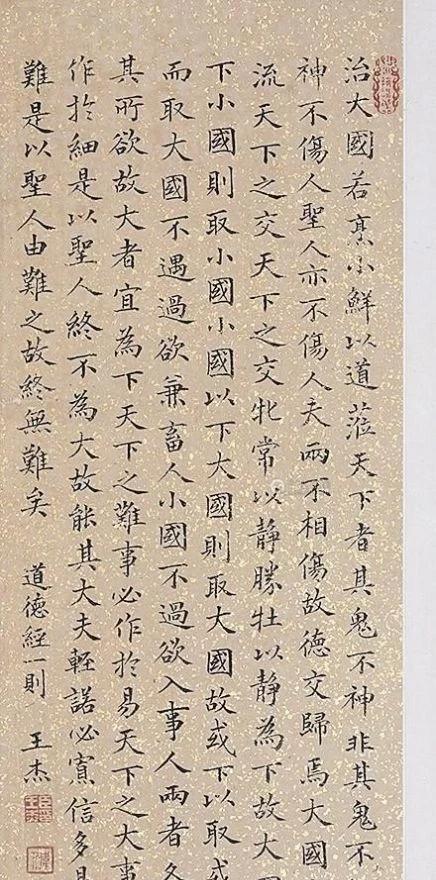 治大國若烹小鮮以道蒞天下者其鬼不神非其鬼不
神不傷人聖人亦不傷人夫兩不相傷故德交歸焉大國
流天下之交天下之交牝常以靜勝牡以靜為下故大
下小國則取小國小國以下大國則取大國故或下以取或
而取大國不遇過欲兼畜人小國不過欲入事人兩者各
其所欲故大者宜為下天下之難事必作於易天下之大事
作於細是以聖人終不為大故能其大夫輕諾必寡信多易
難是以聖人由難之故終無難矣
道德經一則
王杰